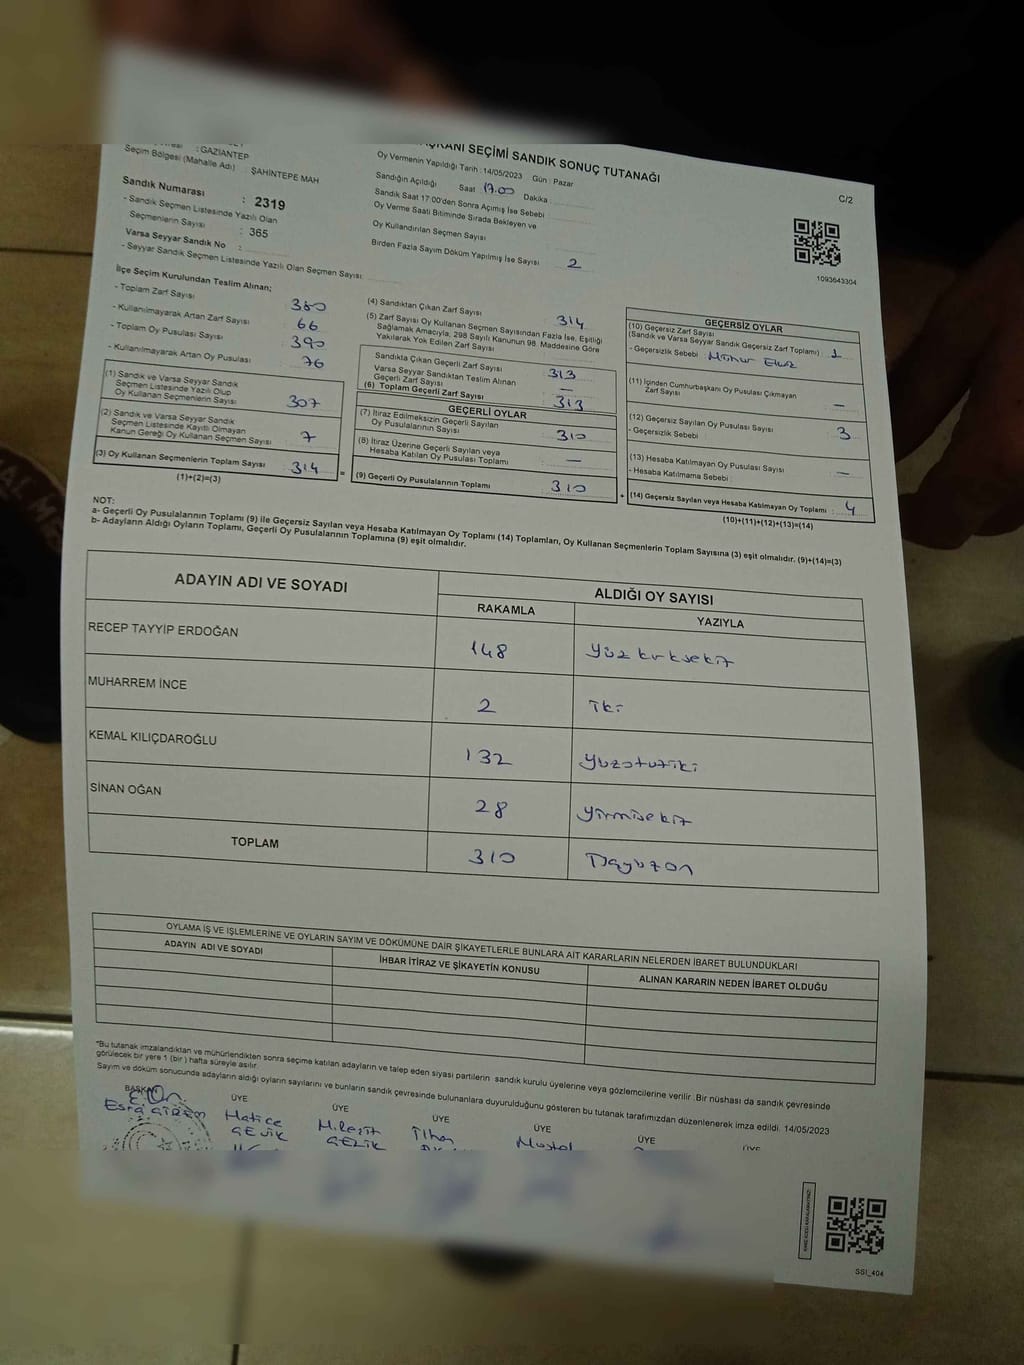 ŞKANI SEÇİMİ SANDIK SONUÇ TUTANAĞI
: GAZİANTEP
Seçim Bölgesi (Mahalle Adı) : ŞAHİNTEPE MAH
Sandık Numarası : 2319
- Sandık Seçmen Listesinde Yazılı Olan
Seçmenlerin Sayısı : 365
Varsa Seyyar Sandık No :
- Seyyar Sandık Seçmen Listesinde Yazılı Olan Seçmen Sayısı
Oy Vermenin Yapıldığı Tarih : 14/05/2023 Gün : Pazar
Sandığın Açıldığı Saat 17.00 Dakika
Sandık Saat 17:00'den Sonra Açımış İse Sebebi
Oy Verme Saati Bitiminde Sırada Bekleyen ve
Oy Kullandırılan Seçmen Sayısı
Birden Fazla Sayım Döküm Yapılmış İse Sayısı 2
C/2
1093643304
İlçe Seçim Kurulundan Teslim Alınan;
- Toplam Zarf Sayısı : 380
- Kullanılmayarak Artan Zarf Sayısı : 66
- Toplam Oy Pusulası Sayısı : 390
- Kullanılmayarak Artan Oy Pusulası : 76
(1) Sandık ve Varsa Seyyar Sandık
Seçmen Listesinde Yazılı Olup
Oy Kullanan Seçmenlerin Sayısı : 307
(2) Sandık ve Varsa Seyyar Sandık
Seçmen Listesinde Kayıtlı Olmayan
Kanun Gereği Oy Kullanan Seçmen Sayısı : 7
(3) Oy Kullanan Seçmenlerin Toplam Sayısı : 314 =
(1)+(2)=(3)
(4) Sandıktan Çıkan Zarf Sayısı : 314
(5) Zarf Sayısı Oy Kullanan Seçmen Sayısından Fazla İse, Eşitliği
Sağlamak Amacıyla, 298 Sayılı Kanunun 98. Maddesine Göre
Yakılarak Yok Edilen Zarf Sayısı
Sandıkta Çıkan Geçerli Zarf Sayısı : 313
Varsa Seyyar Sandıktan Teslim Alınan
Geçerli Zarf Sayısı : —
(6) Toplam Geçerli Zarf Sayısı : 313
GEÇERLİ OYLAR
(7) İtiraz Edilmeksizin Geçerli Sayılan
Oy Pusulalarının Sayısı : 310
(8) İtiraz Üzerine Geçerli Sayılan veya
Hesaba Katılan Oy Pusulası Toplamı : —
(9) Geçerli Oy Pusulalarının Toplamı : 310 +
GEÇERSİZ OYLAR
(10) Geçersiz Zarf Sayısı
(Sandık ve Varsa Seyyar Sandık Geçersiz Zarf Toplamı) : 1
- Geçersizlik Sebebi :
(11) İçinden Cumhurbaşkanı Oy Pusulası Çıkmayan
Zarf Sayısı : —
(12) Geçersiz Sayılan Oy Pusulası Sayısı : 3
- Geçersizlik Sebebi :
(13) Hesaba Katılmayan Oy Pusulası Sayısı : —
- Hesaba Katılmama Sebebi :
(14) Geçersiz Sayılan veya Hesaba Katılmayan Oy Toplamı : 4
(10)+(11)+(12)+(13)=(14)
NOT:
a- Geçerli Oy Pusulalarının Toplamı (9) ile Geçersiz Sayılan veya Hesaba Katılmayan Oy Toplamı (14) Toplamları, Oy Kullanan Seçmenlerin Toplam Sayısına (3) eşit olmalıdır. (9)+(14)=(3)
b- Adayların Aldığı Oyların Toplamı, Geçerli Oy Pusulalarının Toplamına (9) eşit olmalıdır.
ADAYIN ADI VE SOYADI ALDIĞI OY SAYISI
RAKAMLA YAZIYLA
RECEP TAYYİP ERDOĞAN 148 Yüzkırksekiz
MUHARREM İNCE 2 İki
KEMAL KILIÇDAROĞLU 132 Yüzotuziki
SİNAN OĞAN 28 Yirmisekiz
TOPLAM 310 Üçyüzon
OYLAMA İŞ VE İŞLEMLERİNE VE OYLARIN SAYIM VE DÖKÜMÜNE DAİR ŞİKAYETLERLE BUNLARA AİT KARARLARIN NELERDEN İBARET BULUNDUKLARI
ADAYIN ADI VE SOYADI İHBAR İTİRAZ VE ŞİKAYETİN KONUSU ALINAN KARARIN NEDEN İBARET OLDUĞU
*Bu tutanak imzalandıktan ve mühürlendikten sonra seçime katılan adayların ve talep eden siyasi partilerin sandık kurulu üyelerine veya gözlemcilerine verilir .Bir nüshası da sandık çevresinde
görülecek bir yere 1 (bir ) hafta süreyle asılır.
Sayım ve döküm sonucunda adayların aldığı oyların sayılarını ve bunların sandık çevresinde bulunanlara duyurulduğunu gösteren bu tutanak tarafımızdan düzenlenerek imza edildi. 14/05/2023
BAŞKAN ÜYE ÜYE ÜYE ÜYE ÜYE ÜYE
Esra Hatice M.Reşit İlhan
GEZİK
SSI_404